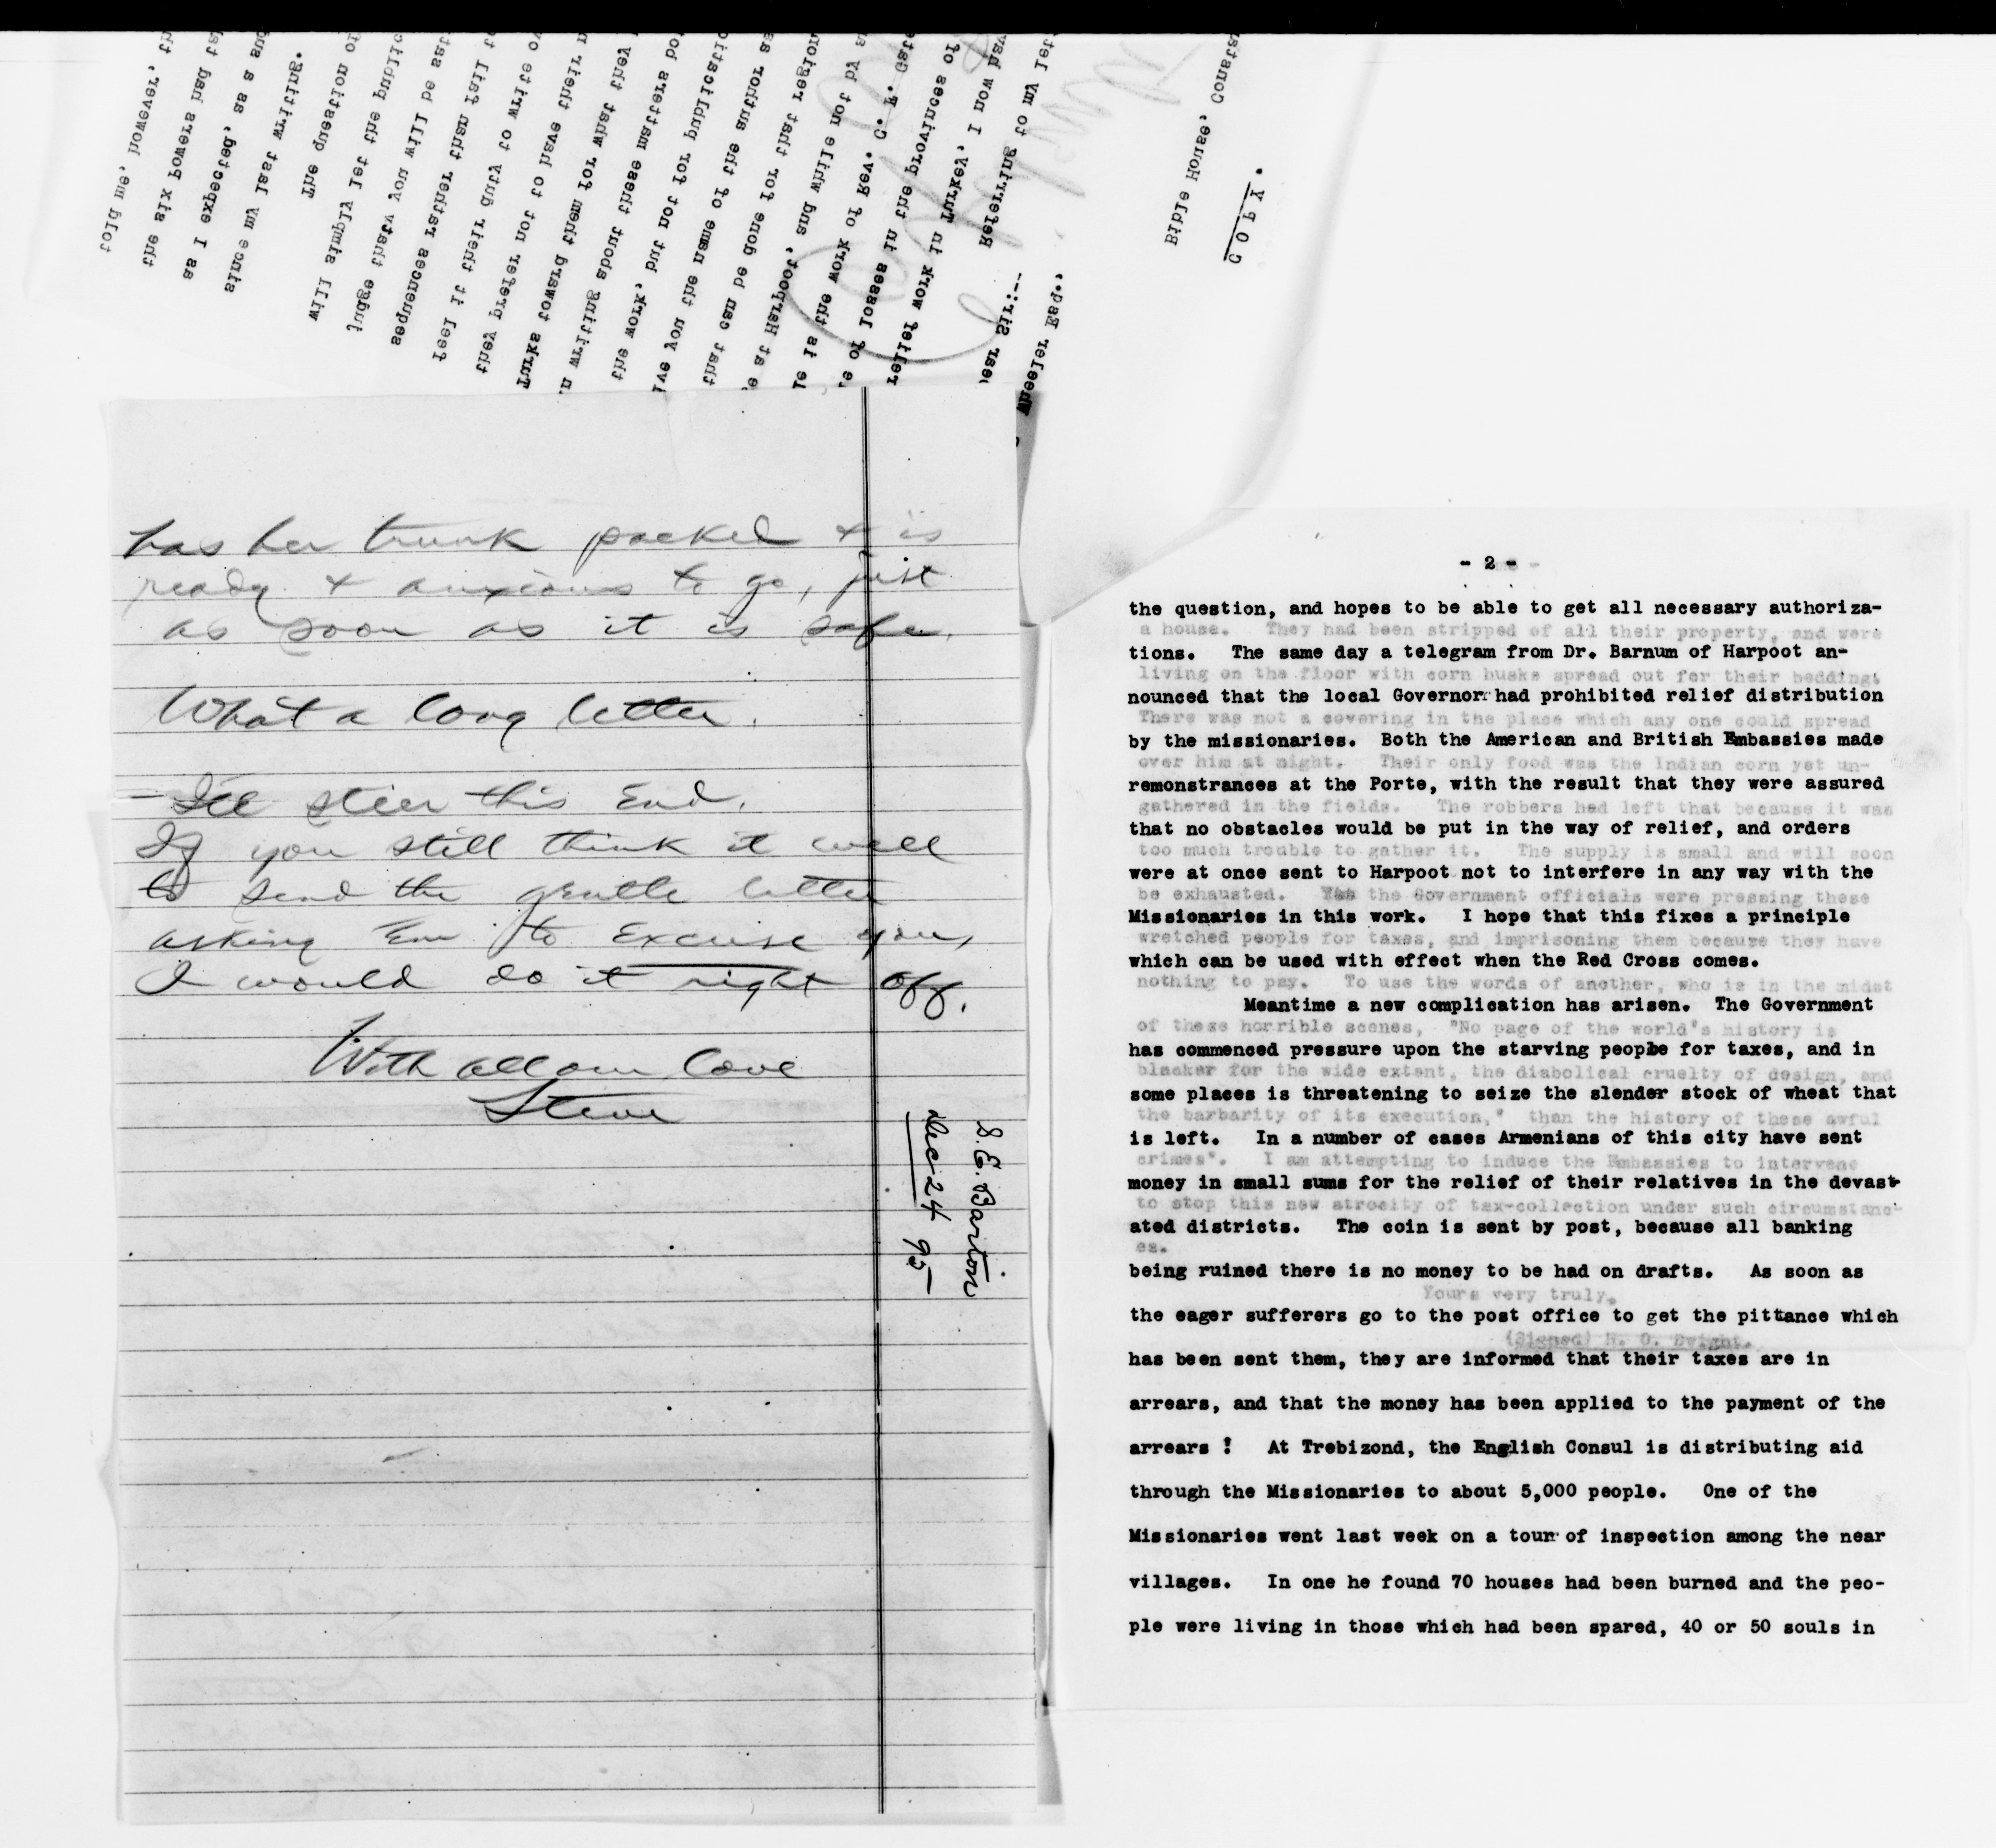 has her trunk packed & is
ready & anxious to go, just
as soon as it is safe.
What a long letter.
I'll steer this End.
If you still think it well
to send the gentle letter
asking Em to Excuse you,
I would do it right off.
With all our love
Steve
S. E. Barton
Dec 24 95
COPY.
Bible House, Consta
Wheeler Esq.,
Dear Sir:--
Referring to my let
relief work in Turkey, I now h
of losses in the provinces of
le at the work of Rev. C. F. Gate
e at Harpoot, and while not by a
that can be done for that region
ive you the name of the author as
the work, but not for publicatio
n writing about these matters bo
Turks toward them for what they
they prefer not to have their n
feel it their duty to write vo
sequences rather than fail t
judge that you will be as
will simply let the public
The question of
since my last writing.
as I expected, as a
the six powers had
told me, however, th
- 2 -
the question, and hopes to be able to get all necessary authoriza-
tions. The same day a telegram from Dr. Barnum of Harpoot an-
nounced that the local Governor had prohibited relief distribution
by the missionaries. Both the American and British Embassies made
remonstrances at the Porte, with the result that they were assured
that no obstacles would be put in the way of relief, and orders
were at once sent to Harpoot not to interfere in any way with the
Missionaries in this work. I hope that this fixes a principle
which can be used with effect when the Red Cross comes.
Meantime a new complication has arisen. The Government
has commenced pressure upon the starving people for taxes, and in
some places is threatening to seize the slender stock of wheat that
is left. In a number of cases Armenians of this city have sent
money in small sums for the relief of their relatives in the devast-
ated districts. The coin is sent by post, because all banking
being ruined there is no money to be had on drafts. As soon as
the eager sufferers go to the post office to get the pittance which
has been sent them, they are informed that their taxes are in
arrears, and that the money has been applied to the payment of the
arrears ! At Trebizond, the English Consul is distributing aid
through the Missionaries to about 5,000 people. One of the
Missionaries went last week on a tour of inspection among the near
villages. In one he found 70 houses had been burned and the peo-
ple were living in those which had been spared, 40 or 50 souls in
a house. They had been stripped of all their property, and were
living on the floor with corn husks spread out for their bedding.
There was not a covering in the place which any one could spread
over him at night. Their only food was the Indian corn yet un-
gathered in the fields. The robbers had left that because it was
too much trouble to gather it. The supply is small and will soon
be exhausted. Yet the Government officials were pressing these
wretched people for taxes, and imprisoning them because they have
nothing to pay. To use the words of another, who is in the midst
of these horrible scenes, "No page of the world's history is
blacker for the wide extent, the diabolical cruelty of design, and
the barbarity of its execution," than the history of these awful
crimes". I am attempting to induce the Embassies to intervene
to stop this new atrocity of tax-collection under such circumstanc-
es.
Yours very truly,
(Signed) H. O. Dwight.